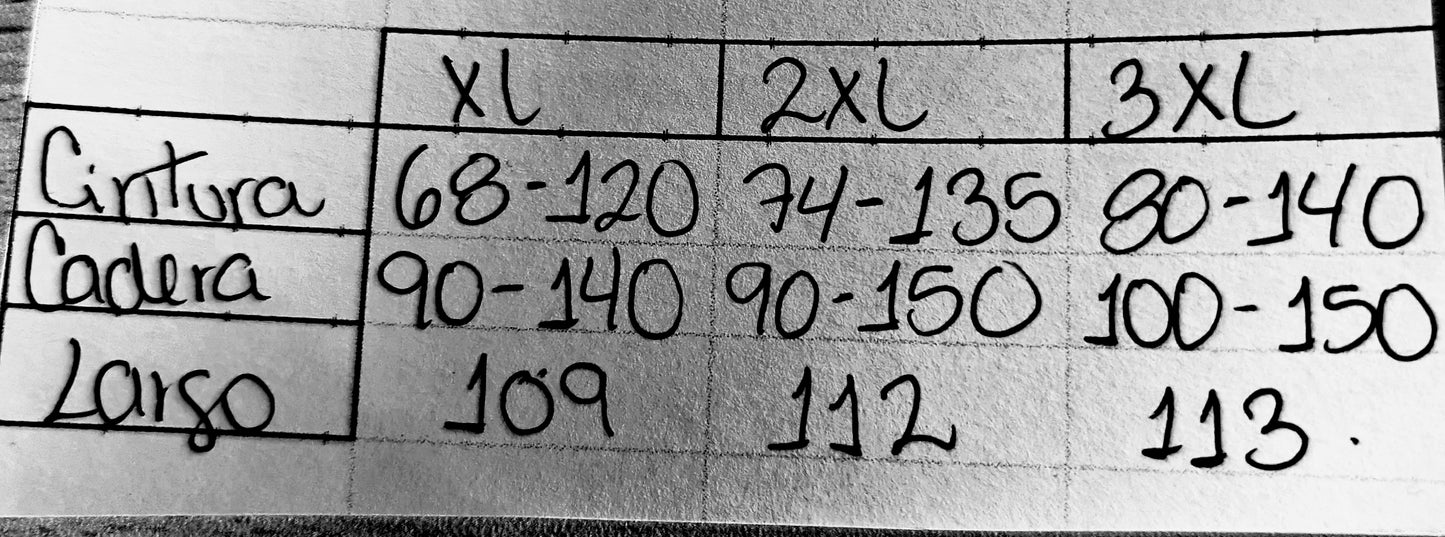 XL 2XL 3XL
Cintura 68-120 74-135 80-140
Cadera 90-140 90-150 100-150
Largo 109 112 113.